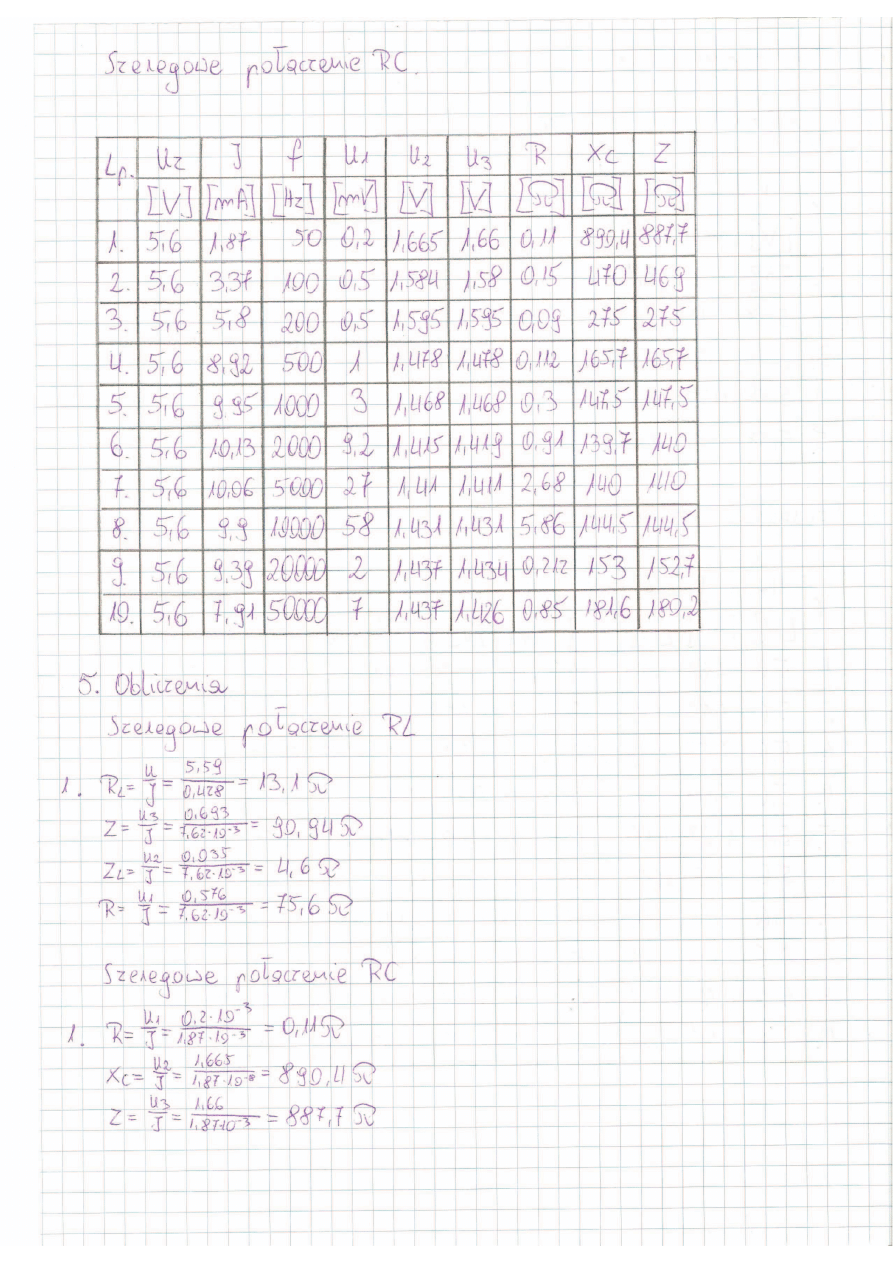 Szeregowe połączenie RC.
Lp. Uz J f U1 U2 U3 R Xc Z
[V] [mA] [Hz] [mV] [V] [V] [Ω] [Ω] [Ω]
1. 5,6 1,87 50 0,2 1,665 1,66 0,11 890,4 887,7
2. 5,6 3,37 100 0,5 1,584 1,58 0,15 470 469
3. 5,6 5,8 200 0,5 1,595 1,595 0,09 275 275
4. 5,6 8,92 500 1 1,478 1,478 0,112 165,7 165,7
5. 5,6 9,95 1000 3 1,468 1,468 0,3 147,5 147,5
6. 5,6 10,13 2000 9,2 1,415 1,419 0,91 139,7 140
7. 5,6 10,06 5000 27 1,41 1,411 2,68 140 140
8. 5,6 9,9 10000 58 1,431 1,431 5,86 144,5 144,5
9. 5,6 9,39 20000 2 1,437 1,434 0,212 153 152,7
10. 5,6 7,91 50000 7 1,437 1,426 0,85 181,6 180,2
5. Obliczenia
Szeregowe połączenie RL
1. RL = U/J = 5,59/0,428 = 13,1 Ω
Z = U3/J = 0,693/7,62·10⁻³ = 90,94 Ω
ZL = U2/J = 0,035/7,62·10⁻³ = 4,6 Ω
R = U1/J = 0,576/7,62·10⁻³ = 75,6 Ω
Szeregowe połączenie RC
1. R = U1/J = 0,2·10⁻³/1,87·10⁻³ = 0,11 Ω
Xc = U2/J = 1,665/1,87·10⁻³ = 890,4 Ω
Z = U3/J = 1,66/1,87·10⁻³ = 887,7 Ω